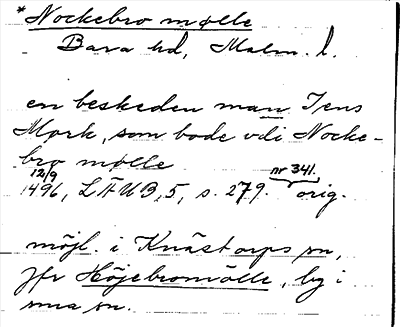 *Nockebro mølle
Bara hd, Malm. l.
en beskeden man Jens
Mørk, som bode vdi Nocke-
bro mølle
12/9 nr 341.
1496, LÄUB, 5, s. 279. orig.
möjl. i Knästorps sn,
jfr Höjebromölle, by i
sma sn.